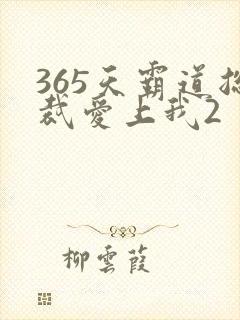 365天霸道总
裁爱上我2
柳雲葭